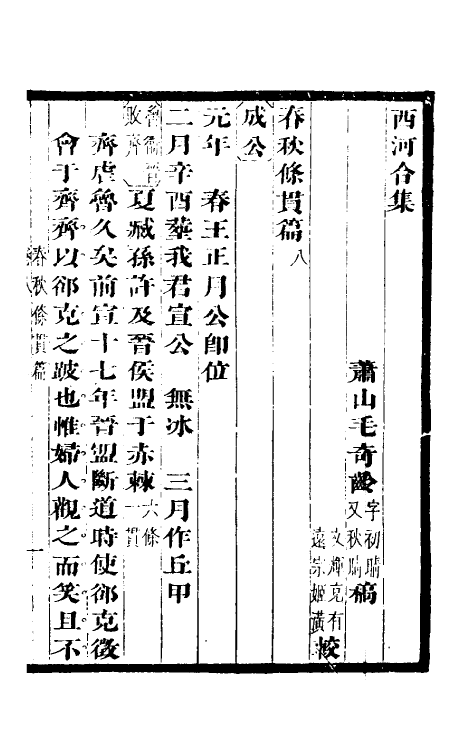 西河合集
蕭山毛奇齡字初晴又秋晴稿
文輝克有遠宗姬潢較
春秋條貫篇八
成公
元年　春王正月公卽位
二月辛酉葬我君宣公　無冰　三月作丘甲
魯衞晉敗齊　夏臧孫許及晉侯盟于赤棘六條一貫
齊虐魯久矣前宣十七年晉盟斷道時使郤克徵
會于齊齊以郤克之跛也帷婦人觀之而笑且不
春秋條貫篇　卷八　一